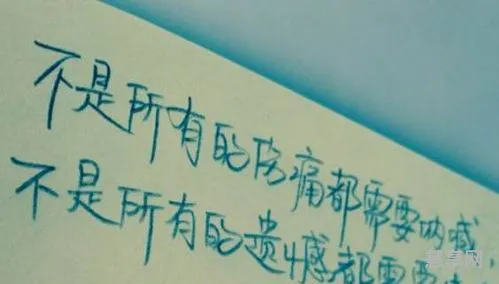 不是所有的伤痛都需要呐喊,
不是所有的遗憾都需要